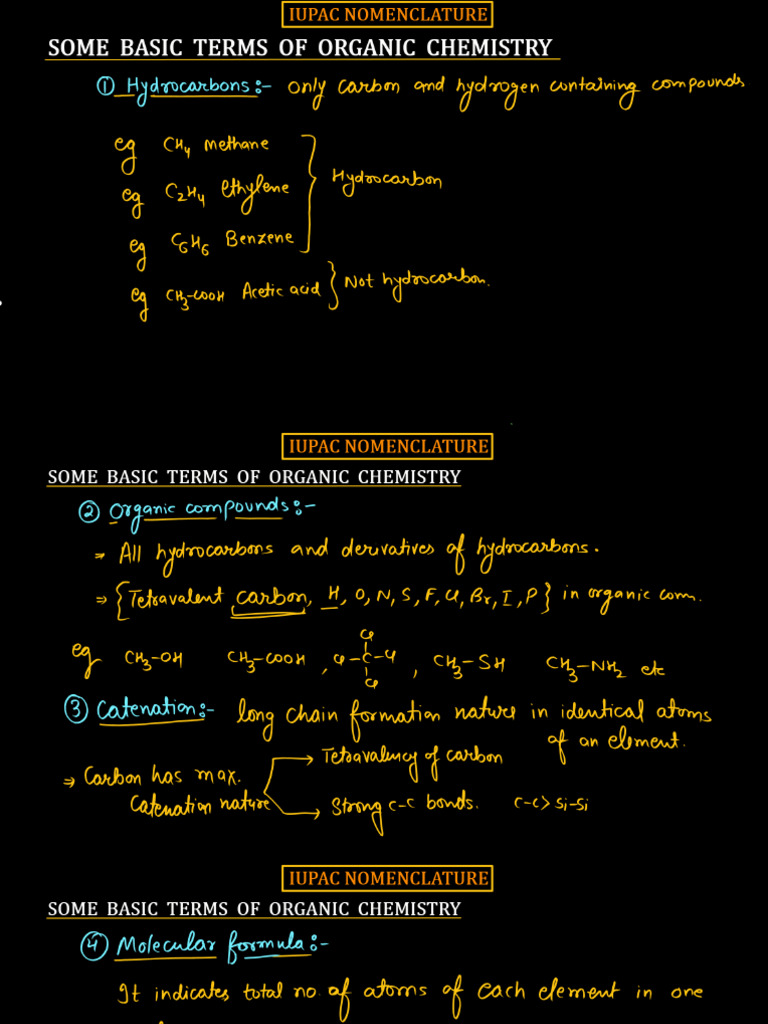 IUPAC NOMENCLATURE
SOME BASIC TERMS OF ORGANIC CHEMISTRY
① Hydrocarbons:- only carbon and hydrogen containing compounds
eg CH₄ methane
eg C₂H₄ Ethylene
eg C₆H₆ Benzene
} Hydrocarbon
eg CH₃-COOH Acetic acid } Not hydrocarbon.
IUPAC NOMENCLATURE
SOME BASIC TERMS OF ORGANIC CHEMISTRY
② Organic compounds:-
⇒ All hydrocarbons and derivatives of hydrocarbons.
⇒ {Tetravalent carbon, H, O, N, S, F, Cl, Br, I, P} in organic com.
Cl
eg CH₃-OH CH₃-COOH, Cl-C-Cl, CH₃-SH CH₃-NH₂ etc
Cl
③ Catenation:- long chain formation nature in identical atoms
of an element.
→ Tetravalency of carbon
⇒ Carbon has max.
Catenation nature → Strong C-C bonds. C-C > Si-Si
IUPAC NOMENCLATURE
SOME BASIC TERMS OF ORGANIC CHEMISTRY
④ Molecular formula:-
It indicates total no. of atoms of each element in one